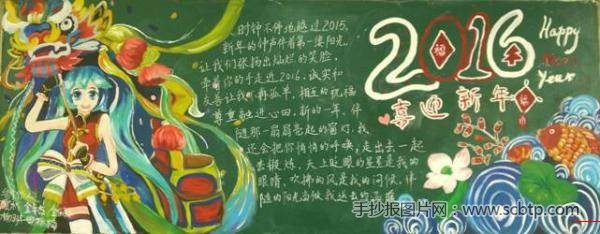 时钟不停地越过2015,
新年的钟声伴着第一缕阳光,
让我们张扬出灿烂的笑脸,
牵着你的手走进2016,诚实和
友善让我们不再孤单,相互的祝福
尊重融进心田,新的一年,伴
随那一扇扇亮起的窗灯,我
还会把你悄悄的呼唤,走出去一起
去锻炼,天上眨眼的星星是我的
眼睛,吹拂的风是我的问候,伴
随的阳光当做我送去的
2016
福
Happy
New
Year
喜迎新年
手抄报图片网-www.scbtp.com